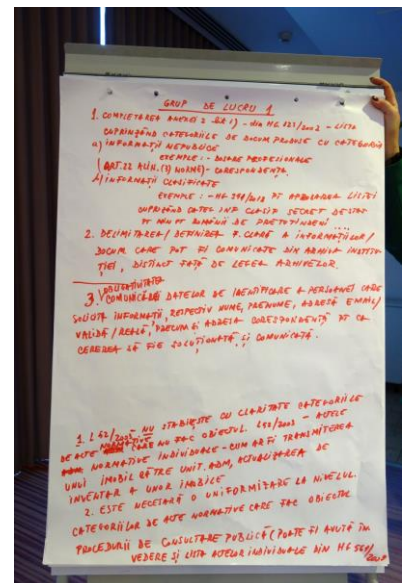 GRUP DE LUCRU 1
1. COMPLETAREA ANEXEI 2 din HG 123/2002 - LISTA
CUPRINZÂND CATEGORIILE DE DOCUM PRODUSE CU CATEGORII
a) INFORMAȚII NEPUBLICE
EXEMPLE: - DOSARE PROFESIONALE
(ART. 22 ALIN. (1) NORME) - CORESPONDENȚA.
b) INFORMAȚII CLASIFICATE
EXEMPLU: - HG PT APROBAREA LISTEI
CUPRINZÂND CATEG INF CLASIF SECRET DE STAT
PT ROMÂNIE DE PRETUTINDENI
2. DELIMITAREA / DEFINIREA F. CLARĂ A INFORMAȚIILOR /
DOCUM CARE POT FI COMUNICATE DIN ARHIVA INSTITU
ȚIEI, DISTINCT FAȚĂ DE LEGEA ARHIVELOR.
OBLIGATIVITATEA
3. COMUNICĂRII DATELOR DE IDENTIFICARE A PERSOANEI CARE
SOLICITĂ INFORMAȚII, RESPECTIV NUME, PRENUME, ADRESĂ EMAIL /
VALIDĂ / REALĂ, PRECUM ȘI ADRESA CORESPONDENȚĂ PT CA
CEREREA SĂ FIE SOLUȚIONATĂ ȘI COMUNICATĂ.
1. L 52/2003 NU STABILEȘTE CU CLARITATE CATEGORIILE
DE ACTE NORMATIVE CARE NU FAC OBIECTUL L52/2003 - ACTELE
NORMATIVE INDIVIDUALE - CUM AR FI TRANSMITEREA
UNUI IMOBIL CĂTRE UNIT. ADM, ACTUALIZAREA DE
INVENTAR A UNOR IMOBILE
2. ESTE NECESARĂ O UNIFORMIZARE LA NIVELUL
CATEGORIILOR DE ACTE NORMATIVE CARE FAC OBIECTUL
PROCEDURII DE CONSULTARE PUBLICĂ (POATE FI AVUTĂ ÎN
VEDERE ȘI LISTA ACTELOR INDIVIDUALE DIN HG 561/